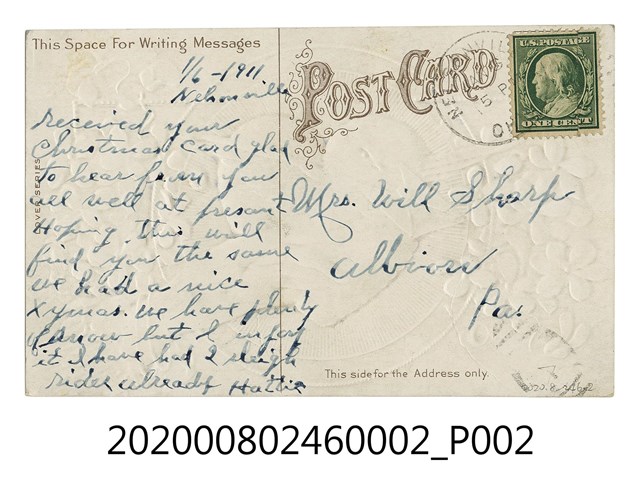 This Space For Writing Messages
POST CARD
U.S. POSTAGE
ONE CENT
1/6 - 1911
Nelsonville
received your
Christmas card glad
to hear from you
all well at presant
Hoping this will
find you the same
we had a nice
xymas. we have plenty
of snow but I injoy
it I have had 2 sleigh
rides already Hattie
Mrs. Will Sharp
Albion
Pa.
This side for the Address only.
202000802460002_P002